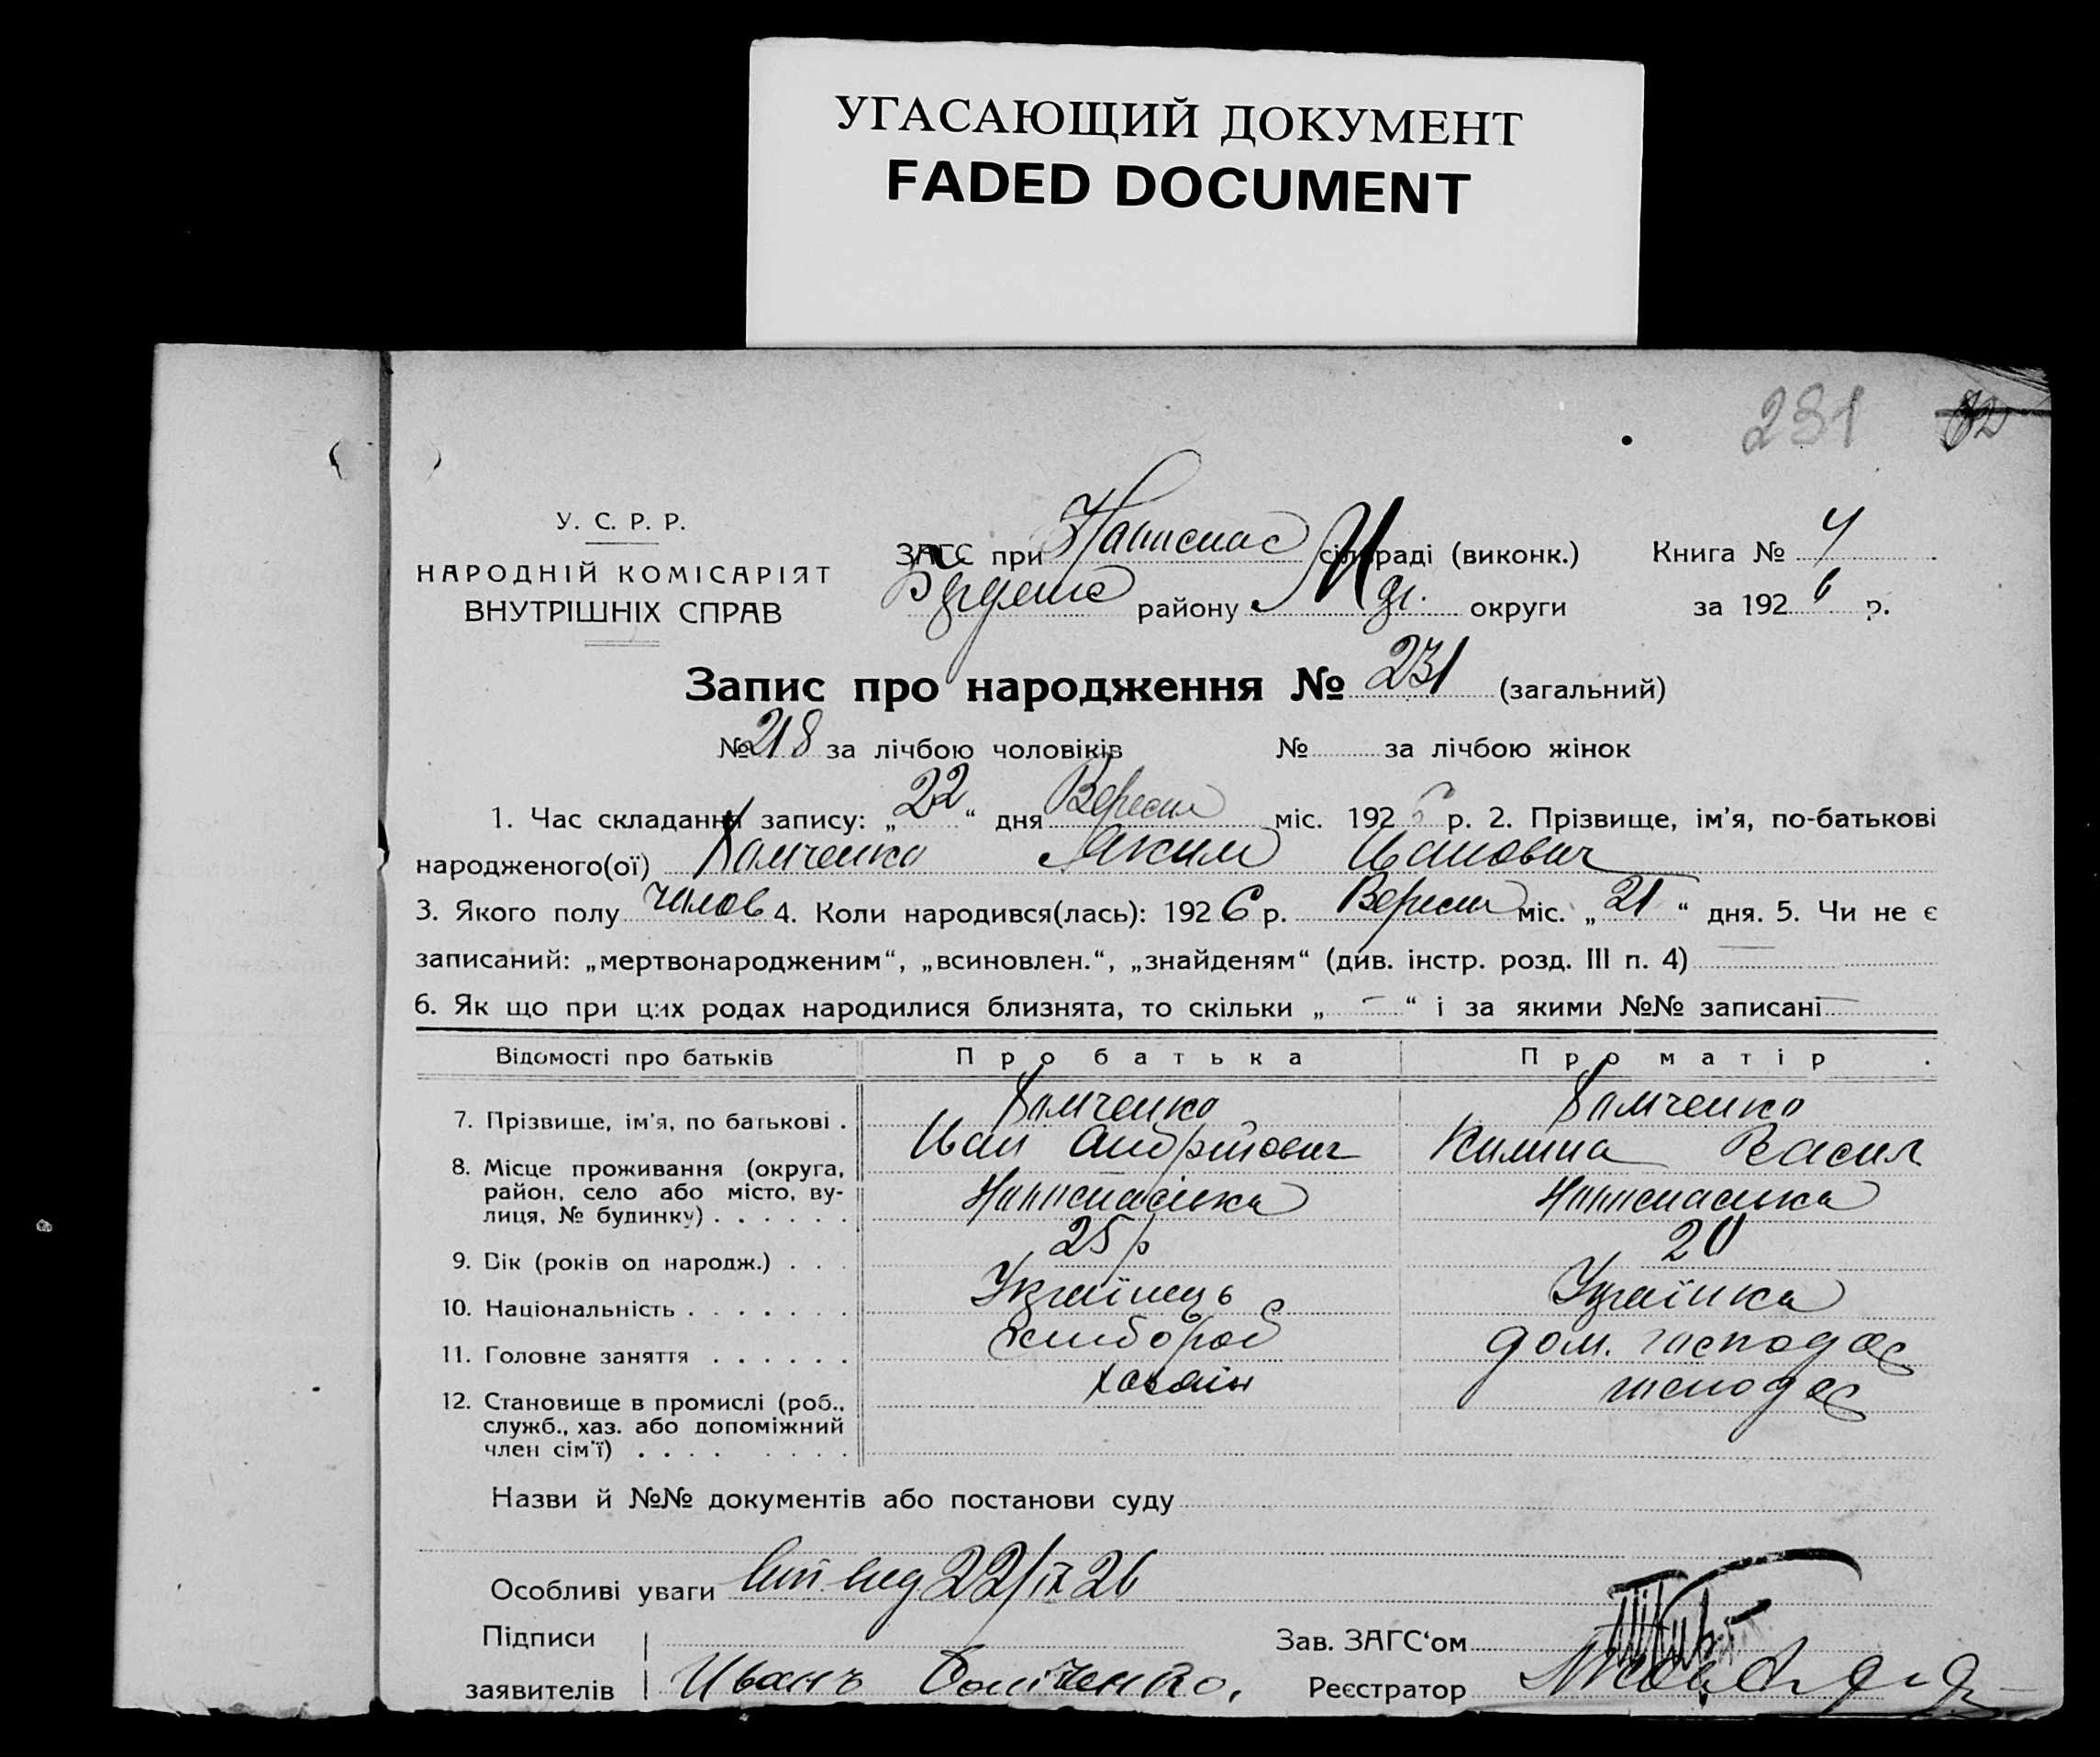 УГАСАЮЩИЙ ДОКУМЕНТ
FADED DOCUMENT
231
У. С. Р. Р.
НАРОДНІЙ КОМІСАРІЯТ
ВНУТРІШНІХ СПРАВ
ЗАГС при сільраді (виконк.)
району округи
Книга № 4
за 1926 р.
Запис про народження № 231 (загальний)
№ 218 за лічбою чоловіків № за лічбою жінок
1. Час складання запису: „22“ дня Вересня міс. 1926 р. 2. Прізвище, ім’я, по-батькові
народженого(ої) Яким Иванович
3. Якого полу чолов 4. Коли народився(лась): 1926 р. Вересня міс. „21“ дня. 5. Чи не є
записаний: „мертвонародженим“, „всиновлен.“, „знайденям“ (див. інстр. розд. III п. 4)
6. Як що при цих родах народилися близнята, то скільки „ — “ і за якими №№ записані —
Відомості про батьків Про батька Про матір
7. Прізвище, ім’я, по батькові .
Иван Андрійович
Килина Васил
8. Місце проживання (округа,
район, село або місто, ву-
лиця, № будинку) . . . . . .
9. Вік (років од народж.) . . . 25 р 20
10. Національність . . . . . . . Українець Українка
11. Головне заняття . . . . . . хлибороб дом. господар
12. Становище в промислі (роб.,
служб., хаз. або допоміжний
член сім’ї) . . . . . . . .
хазаін господар
Назви й №№ документів або постанови суду
Особливі уваги 22/IX 26
Підписи
заявителів Иванъ
Зав. ЗАГС‘ом
Реєстратор